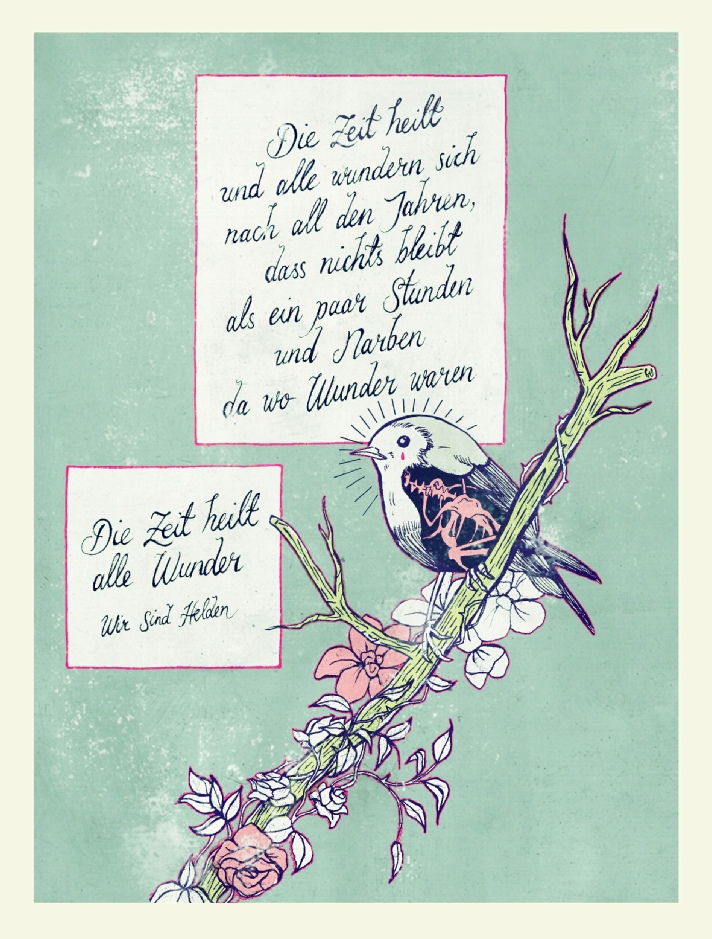 Die Zeit heilt
und alle wundern sich
nach all den Jahren,
dass nichts bleibt
als ein paar Stunden
und Narben
da wo Wunder waren
Die Zeit heilt
alle Wunder
Wir Sind Helden